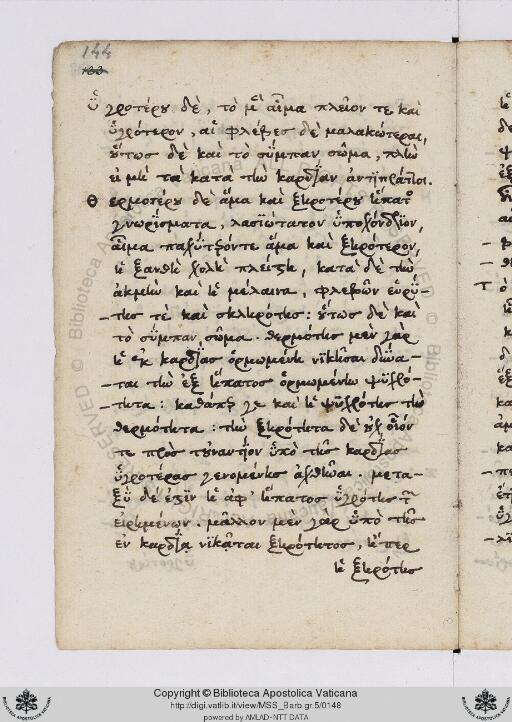 144
133
Ὑγροτέρου δὲ, τὸ μὲν αἷμα πλεῖον τε καὶ
ὑγρότερον, αἱ φλέβες δὲ μαλακώτεραι,
οὕτως δὲ καὶ τὸ σύμπαν σῶμα, πλὴν
εἰ μὴ τὰ κατὰ τὴν καρδίαν ἀντιπράττοι.
Θερμοτέρου δὲ ἅμα καὶ ξηροτέρου ἥπατος
γνωρίσματα, λασιώτατον ὑποχόνδριον,
αἷμα παχύτερόν τε ἅμα καὶ ξηρότερον,
ἡ ξανθὴ χολὴ πλείστη, κατὰ δὲ τὴν
ἀκμὴν καὶ ἡ μέλαινα, φλεβῶν εὐρύ-
της τε καὶ σκληρότης: οὕτως δὲ καὶ
τὸ σύμπαν σῶμα. θερμότης μὲν γὰρ
ἡ ἐκ καρδίας ὁρμωμένη νικῆσαι δύνα-
ται τὴν ἐξ ἥπατος ὁρμωμένην ψυχρό-
τητα: καθάπερ γε καὶ ἡ ψυχρότης τὴν
θερμότητα: τὴν ξηρότητα δὲ οὐχ οἷόν
τε πρὸς τοὐναντίον ὑπὸ τῆς καρδίας
ὑγροτέρας γενομένης ἀχθῆναι. μετα-
ξὺ δὲ ἐστὶν ἡ ἀφ' ἥπατος ὑγρότης τῶν
εἰρημένων. μᾶλλον μὲν γὰρ ὑπὸ τῆς
ἐν καρδίᾳ νικᾶται ξηρότητος, ἤπερ
ἡ ξηρότης
Copyright © Biblioteca Apostolica Vaticana
http://digi.vatlib.it/view/MSS_Barb.gr.5/0148
powered by AMLAD-NTT DATA